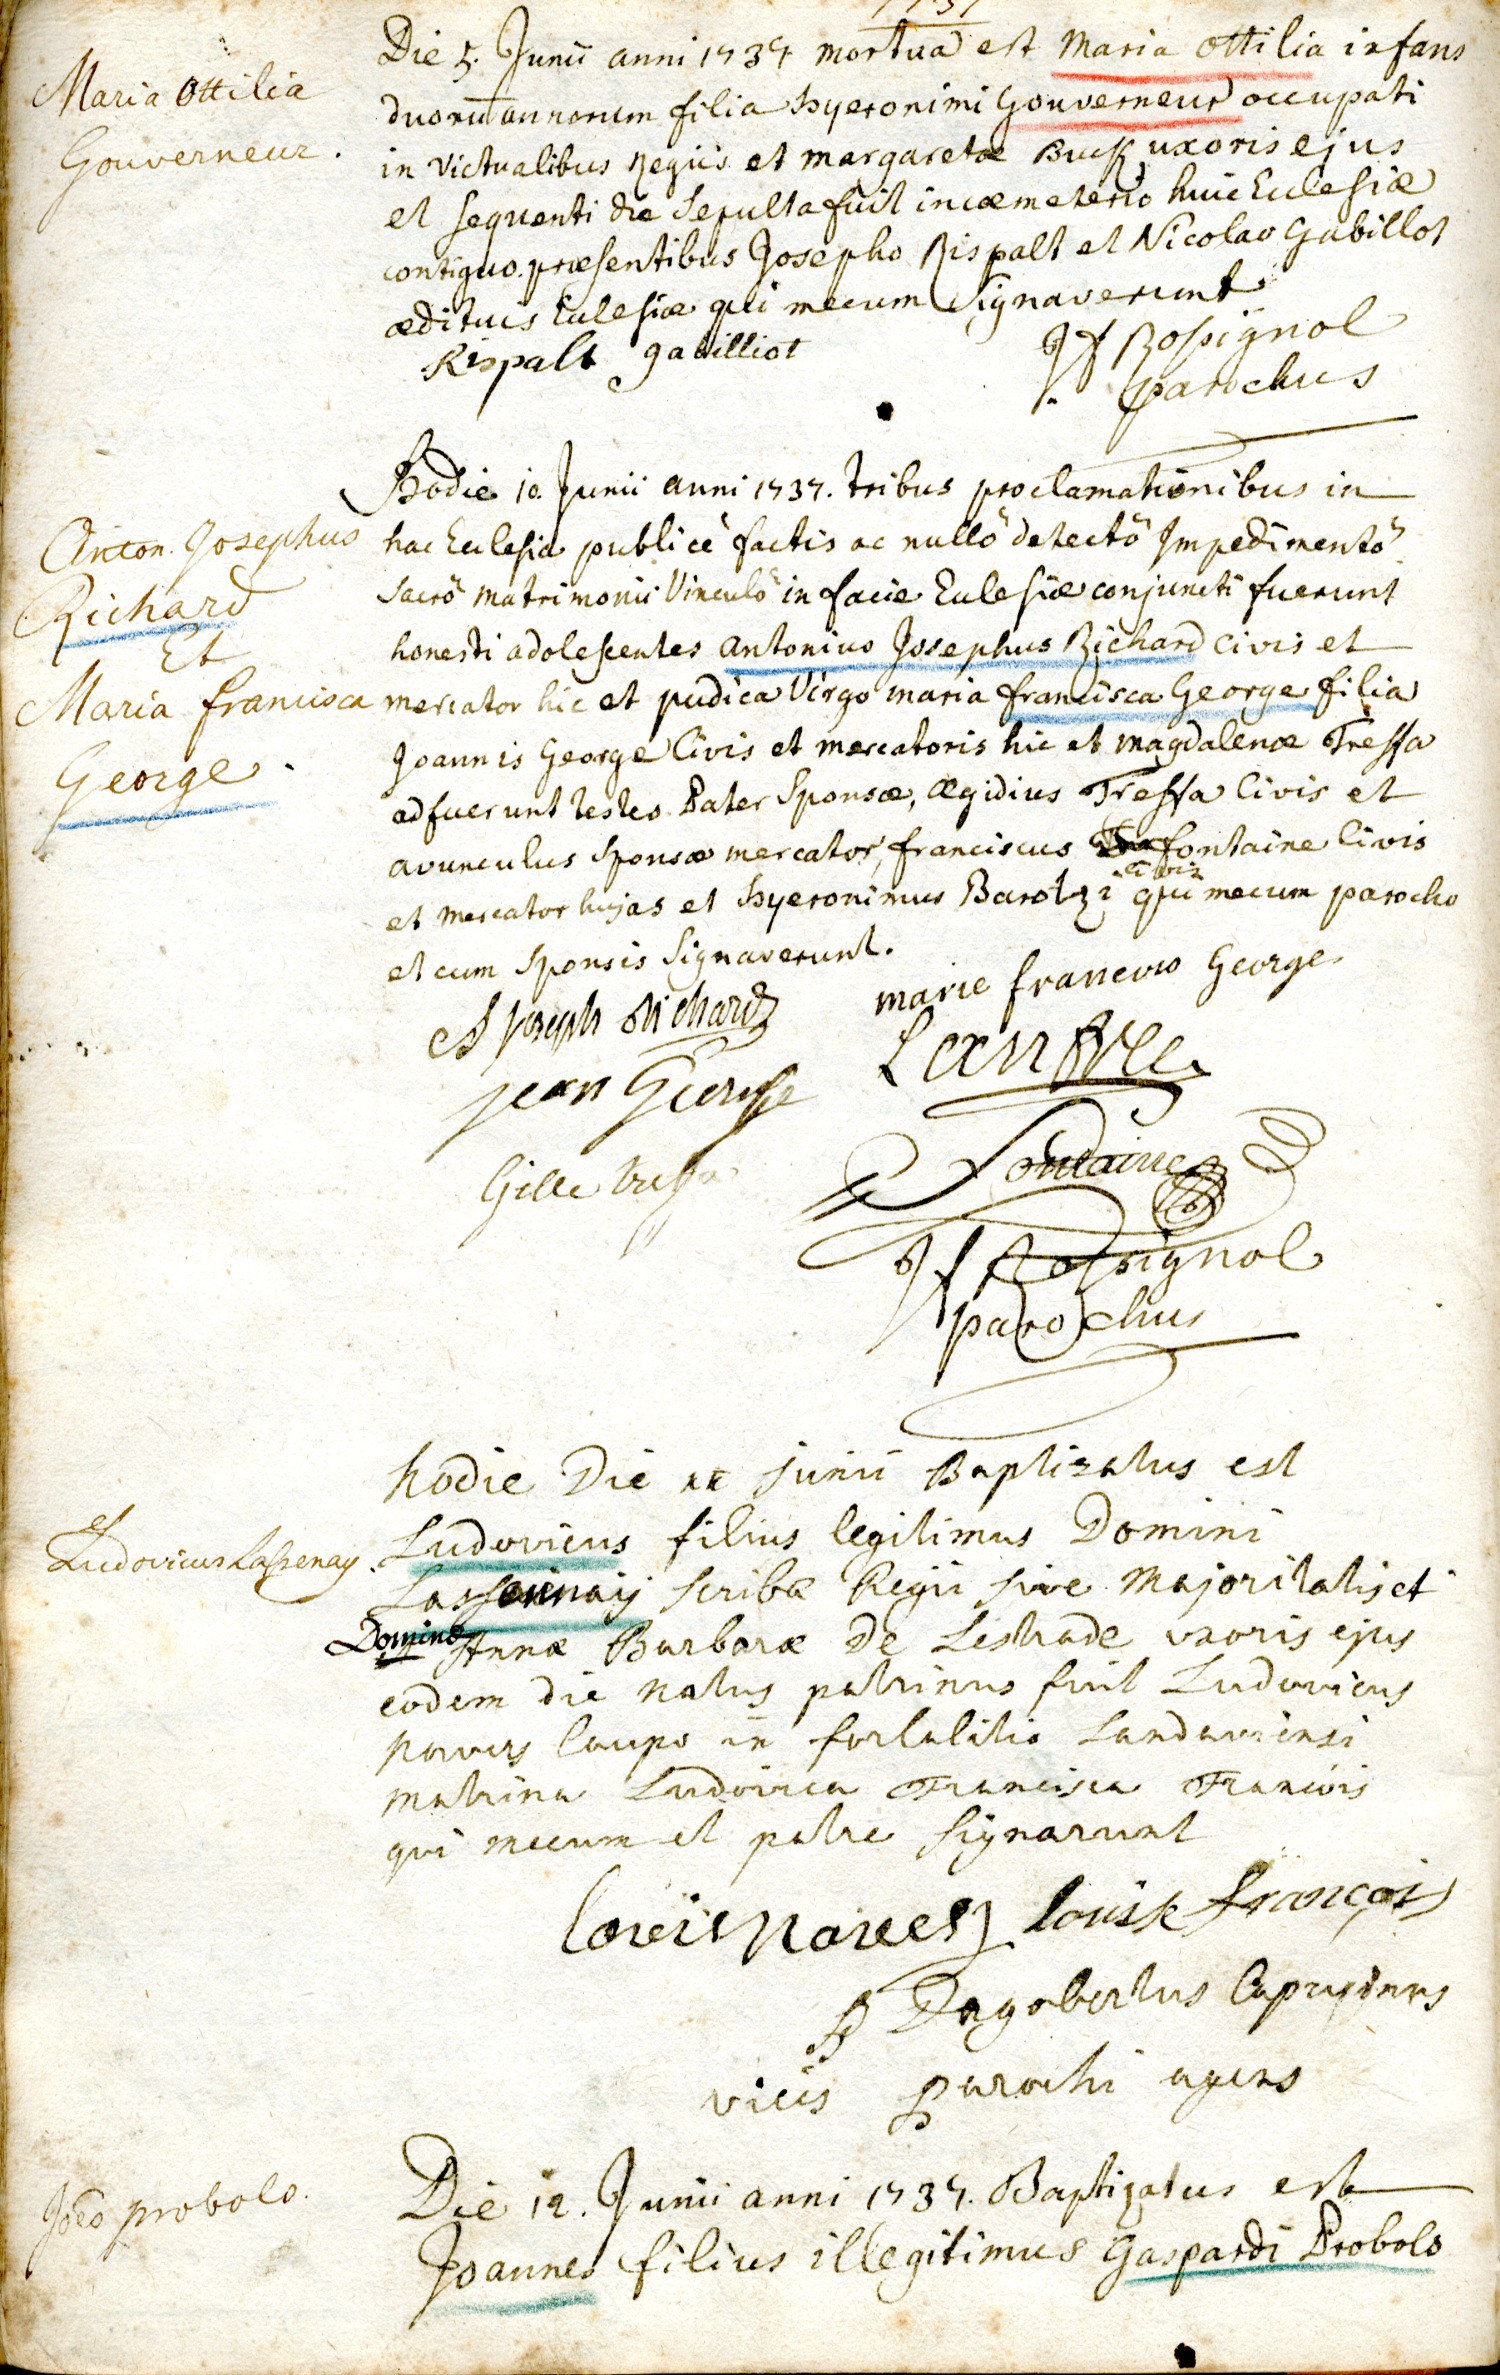 1737
Die 5. Junii anni 1737 mortua est Maria Ottilia infans
Maria Ottilia
Gouverneur.
duorū annorum filia hyeronimi Gouverneur occupati
in victualibus Regiis et margaretæ Buck uxoris ejus
et sequenti die Sepulta fuit in cœmeterio huic Ecclesiæ
contiguo. præsentibus Josepho Rispalt et Nicolao Gabillot
ædituis Eclesiæ qui mecum Signaverunt
Rispalt gabilliot
JF Rossignol
parochus
Hodie 10. Junii anni 1737. tribus proclamationibus in
Anton. Josephus
Richard
Et
Maria francisca
George.
hac Eclesia publicè factis ac nullô detectô Impedimentô
sacrô matrimonii Vinculô in facie Eclesiæ conjuncti fuerunt
honesti adolescentes antonius Josephus Richard civis et
mercator hic et pudica Virgo maria francisca George filia
Joannis George Civis et mercatoris hic et magdalenæ Tressa
adfuerunt testes Pater Sponsæ, Ægidius Tressa Civis et
avunculus Sponsæ mercator, franciscus fontaine Civis
et mercator hujas et hyeronimus Barolzi civis qui mecum parocho
et cum Sponsis Signaverunt.
A Joseph Richard
marie francois George
jean George
Gille tressa
fontaine
JF Rossignol
parochus
hodie Die 11 Junii Baptizatus est
Ludovicus Lassenay.
Ludovicus filius legitimus Domini
Lassennaij scribæ Regii sive Majoritatis et
Dominæ Annæ Barbaræ De Lestrade uxoris ejus
eodem die natus patrinus fuit Ludovicus
in fortalitio Landaviensi
matrina Ludovica Francisca Francois
qui mecum et patre signarunt
Louise François
Dagobertus Capucinus
vices Parochi agens
Die 12. Junii anni 1737. Baptizatus est
Joēs probolo.
Joannes filius illegitimus Gaspardi Probolo